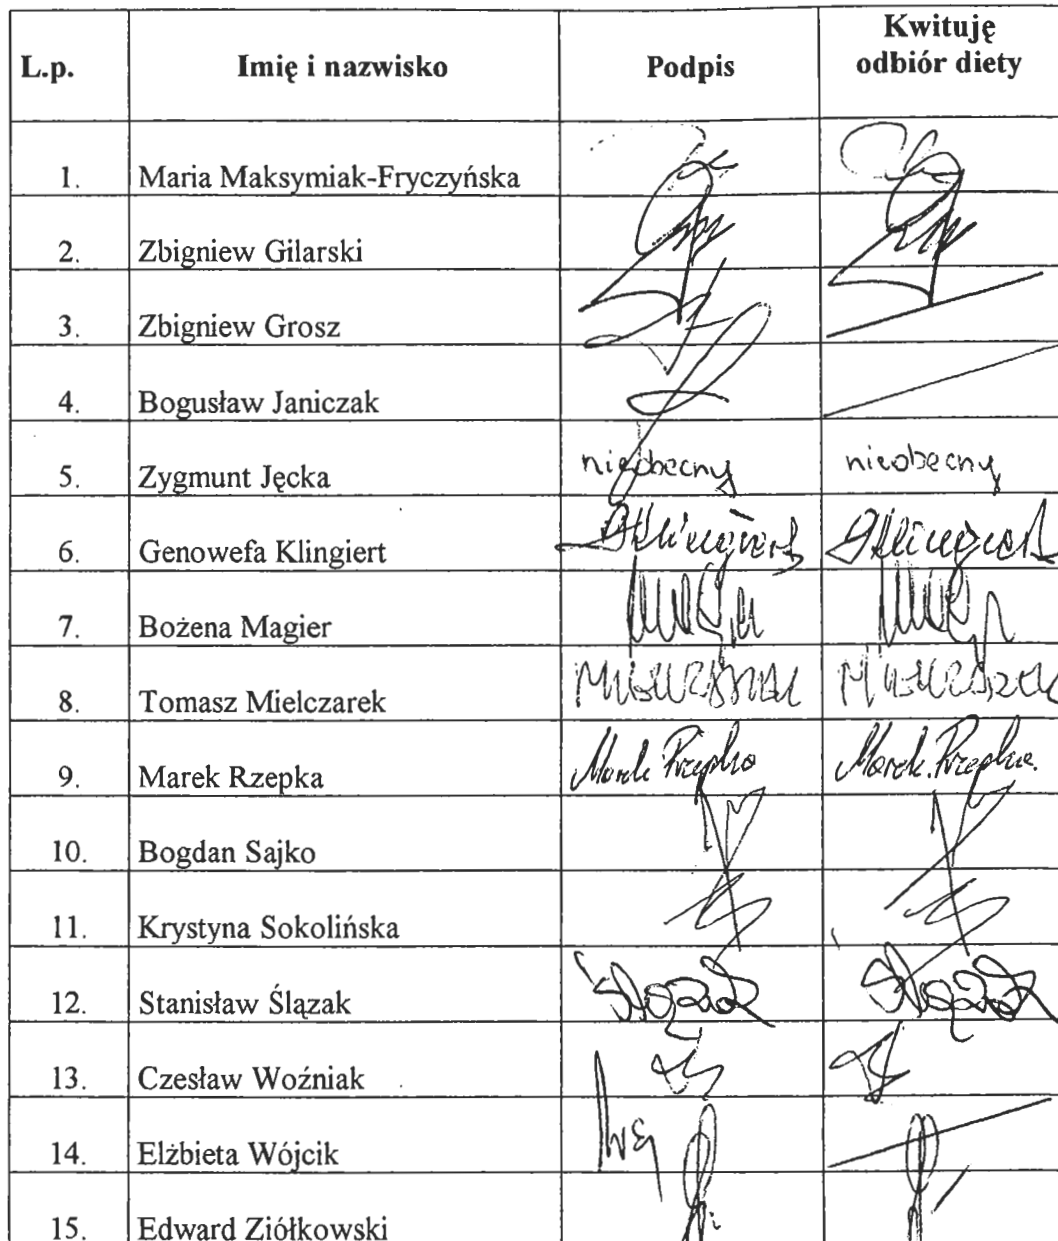 L.p. Imię i nazwisko Podpis Kwituję odbiór diety
1. Maria Maksymiak-Fryczyńska
2. Zbigniew Gilarski
3. Zbigniew Grosz
4. Bogusław Janiczak
5. Zygmunt Jęcka nieobecny nieobecny
6. Genowefa Klingiert GKlingiert GKlingiert
7. Bożena Magier
8. Tomasz Mielczarek Mielczarek Mielczarek
9. Marek Rzepka Marek Rzepka Marek Rzepka
10. Bogdan Sajko
11. Krystyna Sokolińska
12. Stanisław Ślązak Ślązak Ślązak
13. Czesław Woźniak
14. Elżbieta Wójcik
15. Edward Ziółkowski